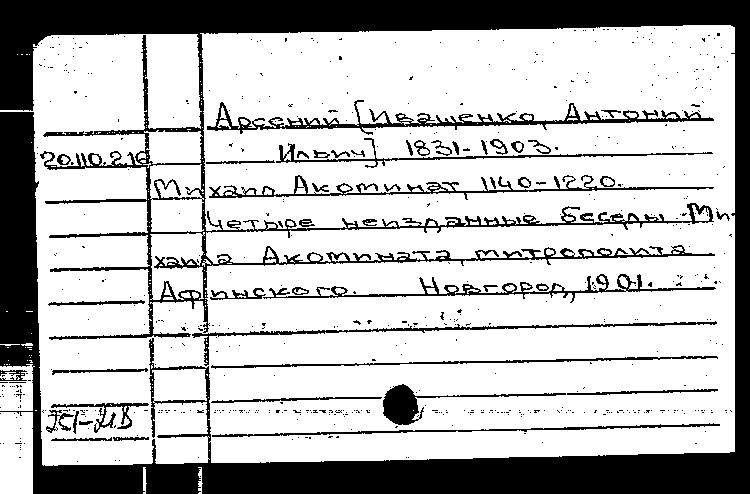 Арсений [Иващенко, Антоний
20.110.216 Ильич], 1831-1903.
Михаил Акоминат, 1140-1220.
Четыре неизданные беседы Ми-
хаила Акомината, митрополита
Афинского. Новгород, 1901.